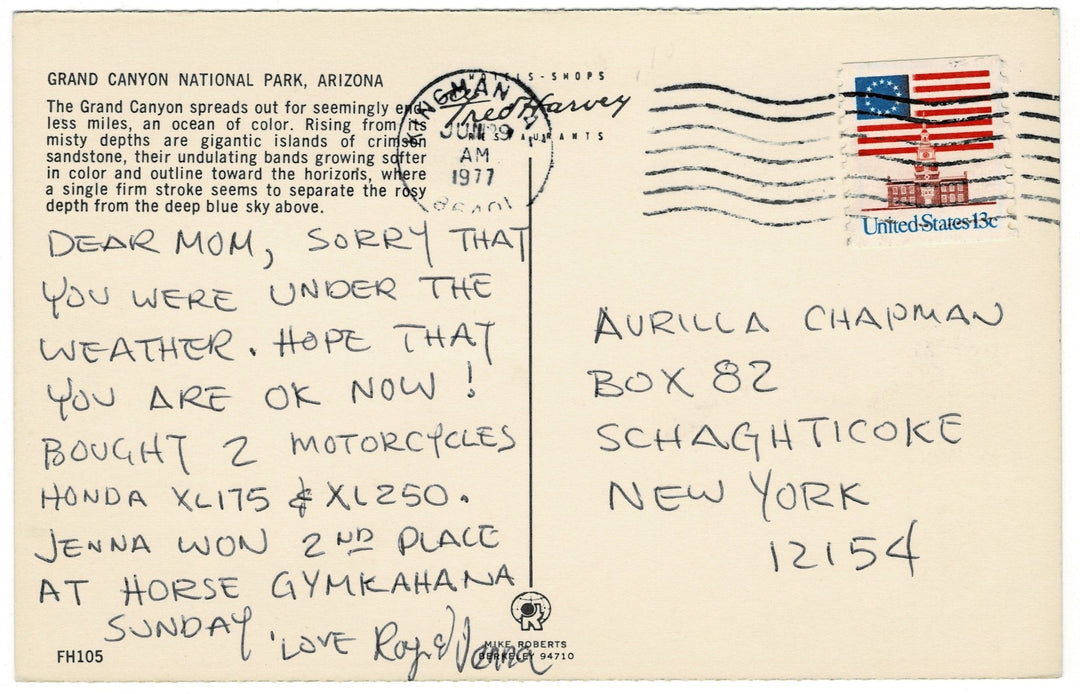 GRAND CANYON NATIONAL PARK, ARIZONA
The Grand Canyon spreads out for seemingly end-
less miles, an ocean of color. Rising from its
misty depths are gigantic islands of crimson
sandstone, their undulating bands growing softer
in color and outline toward the horizons, where
a single firm stroke seems to separate the rosy
depth from the deep blue sky above.
HOTELS-SHOPS
Fred Harvey
RESTAURANTS
KINGMAN
JUN 29
AM
1977
United States 13c
DEAR MOM, SORRY THAT
YOU WERE UNDER THE
WEATHER. HOPE THAT
YOU ARE OK NOW!
BOUGHT 2 MOTORCYCLES
HONDA XL175 & XL250.
JENNA WON 2ND PLACE
AT HORSE GYMKAHANA
SUNDAY
LOVE Roy & Jenna
AURILLA CHAPMAN
BOX 82
SCHAGHTICOKE
NEW YORK
12154
FH105
MIKE ROBERTS
BERKELEY 94710